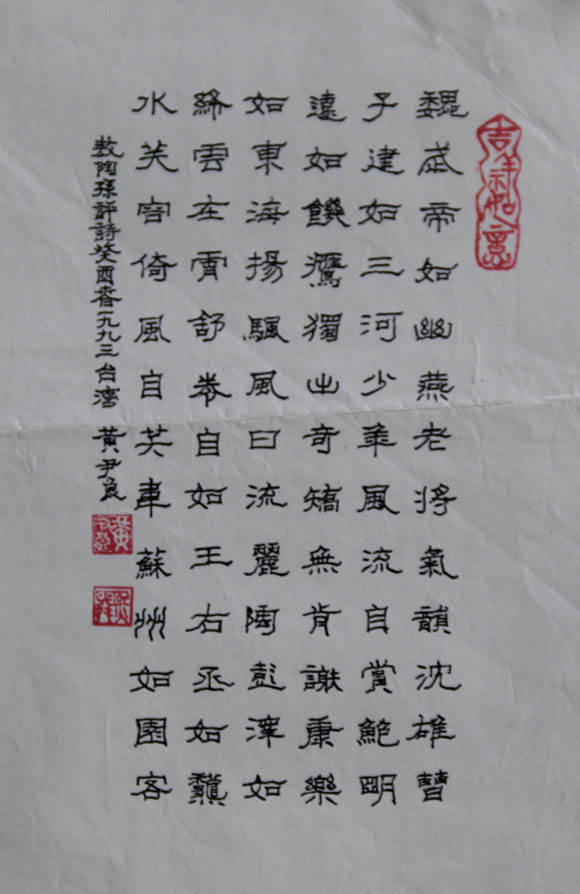 吉祥如意
魏武帝如幽燕老將氣韻沈雄曹
子建如三河少年風流自賞鮑明
遠如饑鷹獨出奇矯無肯謝康樂
如東海揚颿風日流麗陶彭澤如
絳雲在霄舒卷自如王右丞如龝
水芙蓉倚風自笑韋蘇州如園客
敖陶孫評詩癸酉春一九九三台灣 黃尹良